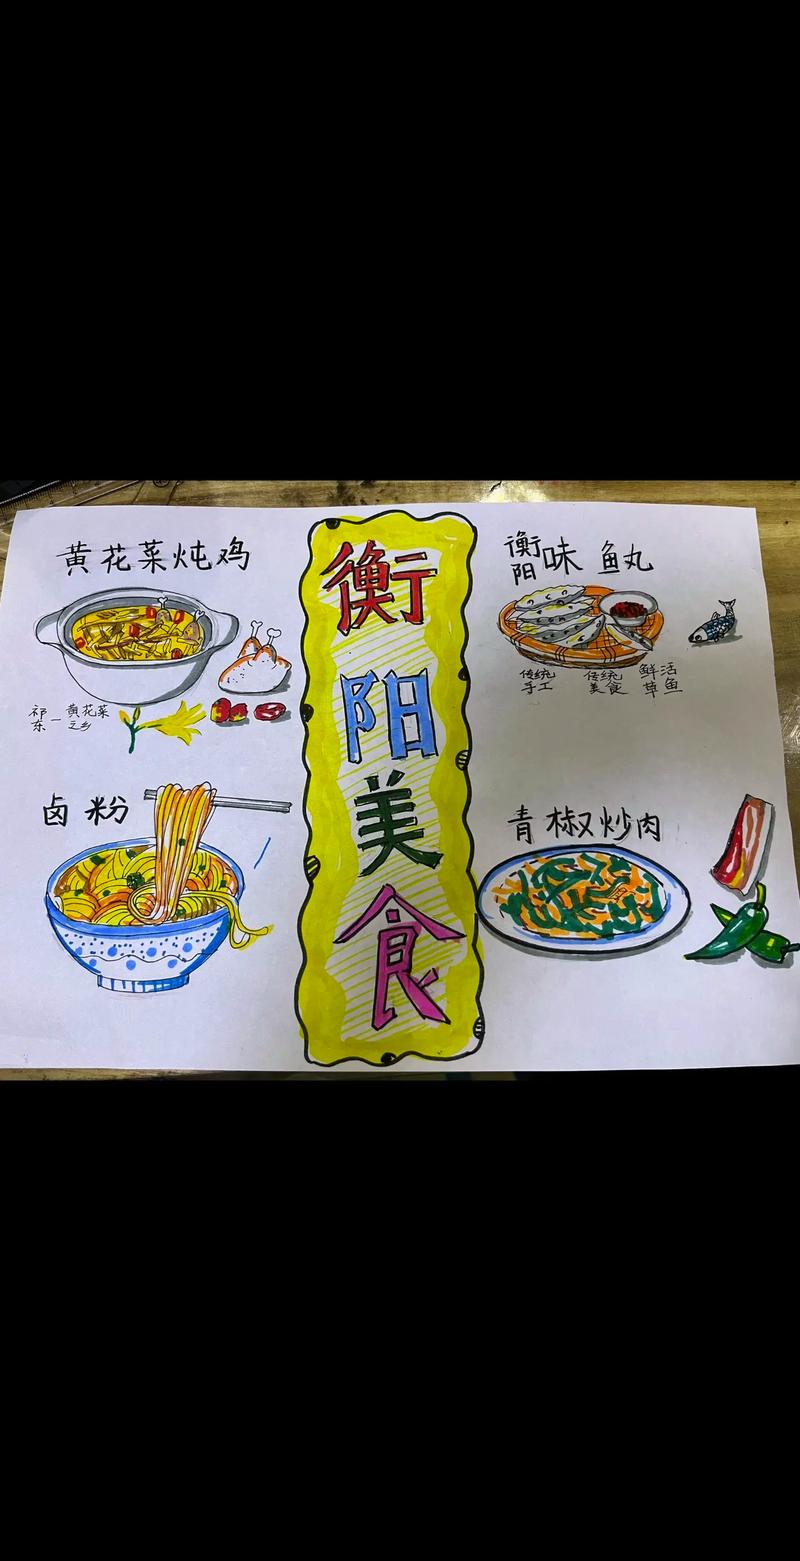 黄花菜炖鸡
祁东—黄花菜之乡
卤粉
衡阳美食
衡阳味 鱼丸
传统手工
传统美食
鲜活草鱼
青椒炒肉